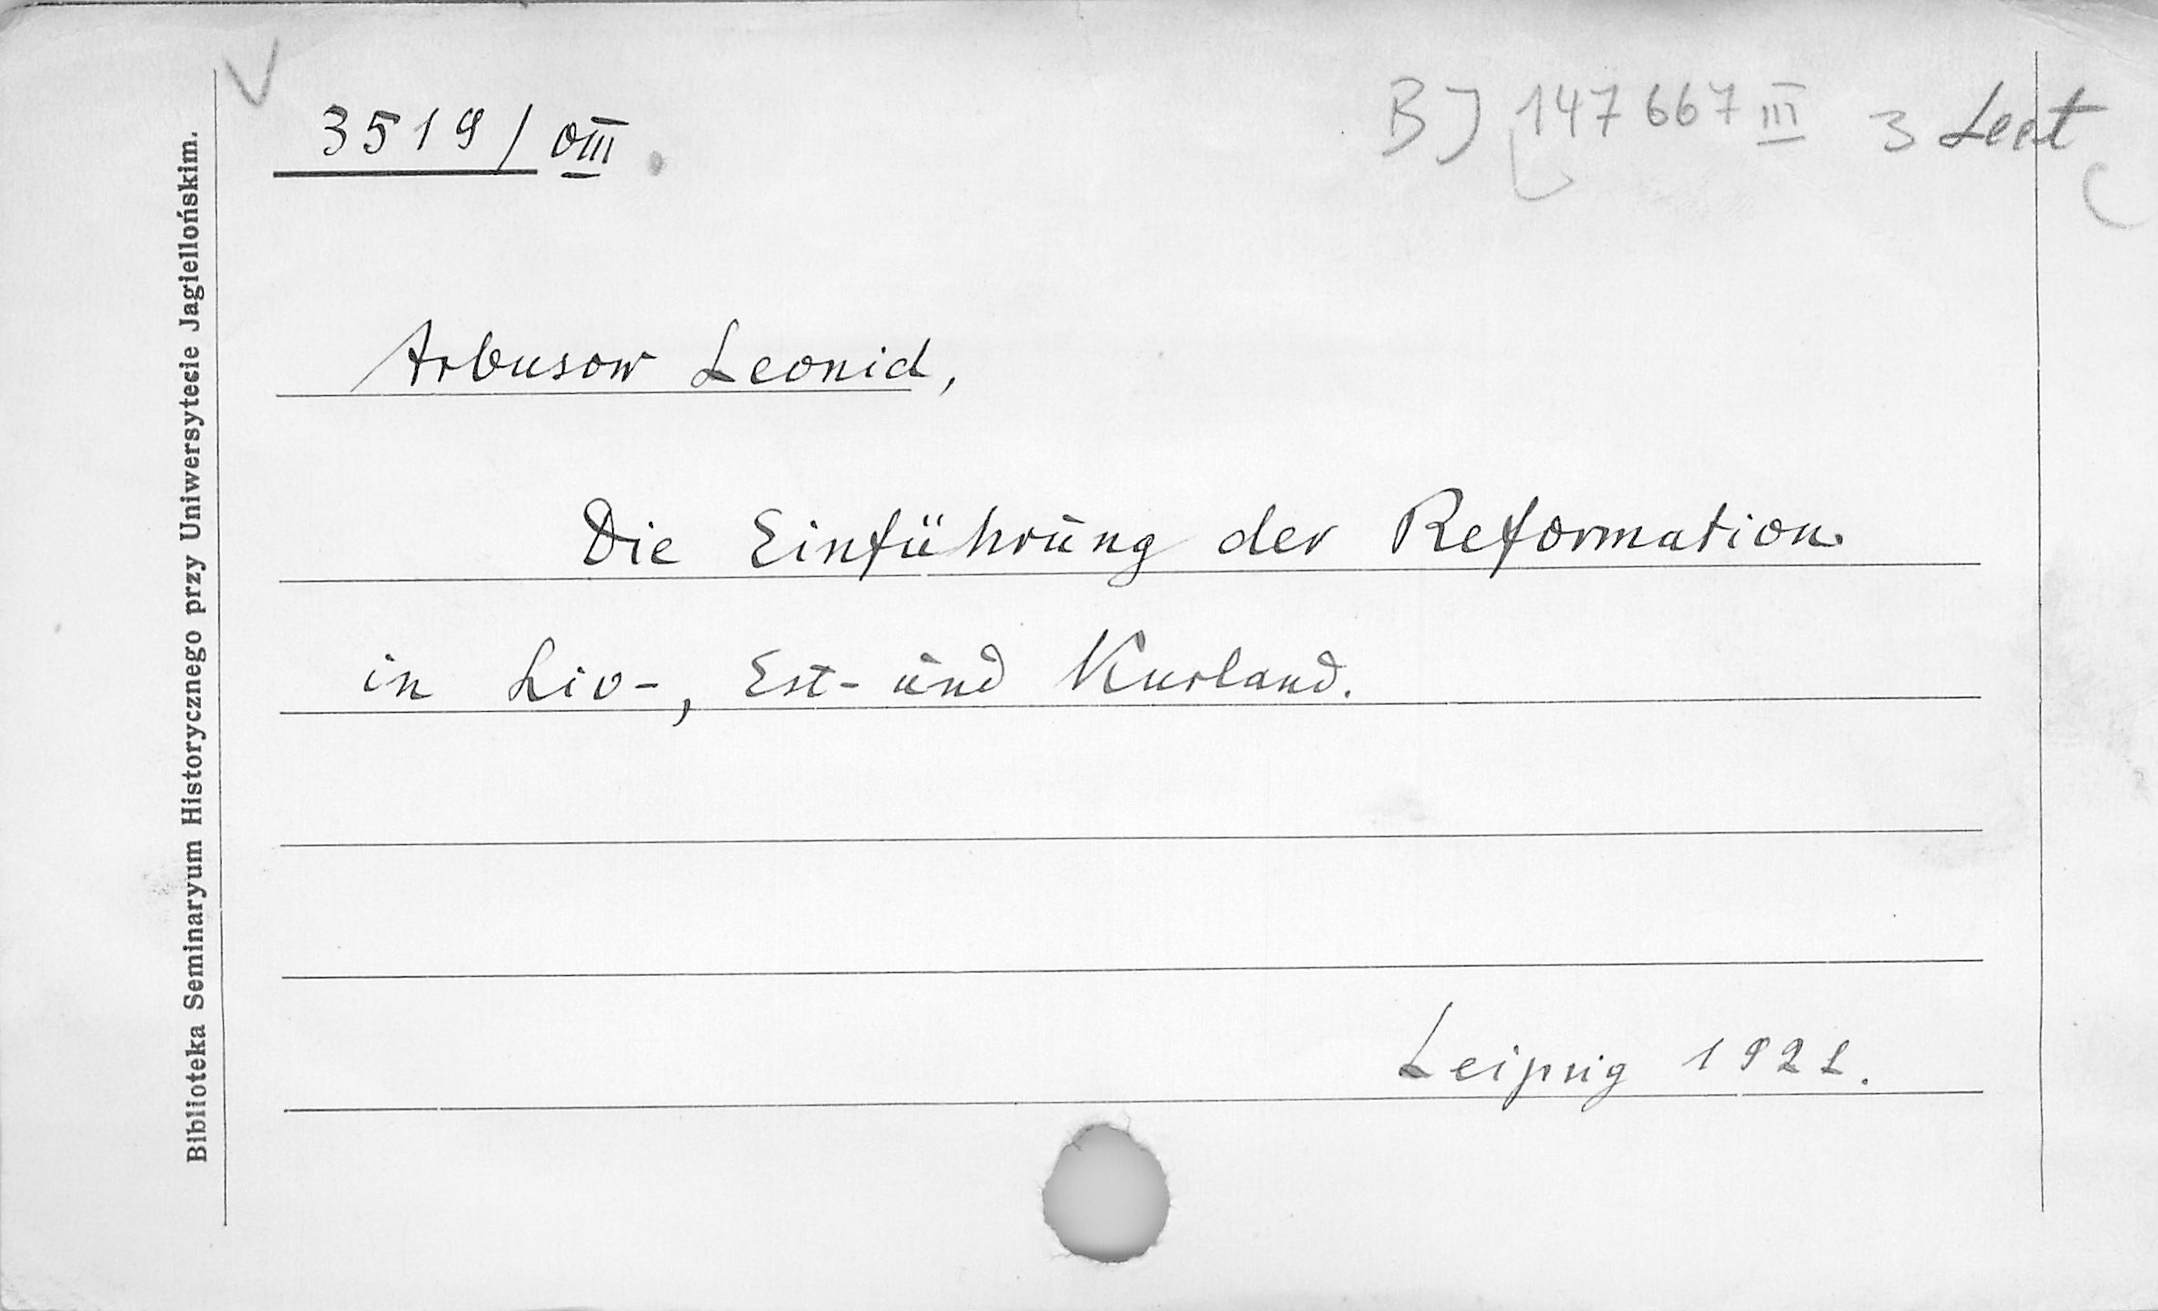 3519/oIII.
BJ 147667 III 3 Lect
Arbusow Leonid,
Die Einführung der Reformation
in Liv-, Est- und Kurland.
Leipzig 1921.
Biblioteka Seminaryum Historycznego przy Uniwersytecie Jagiellońskim.